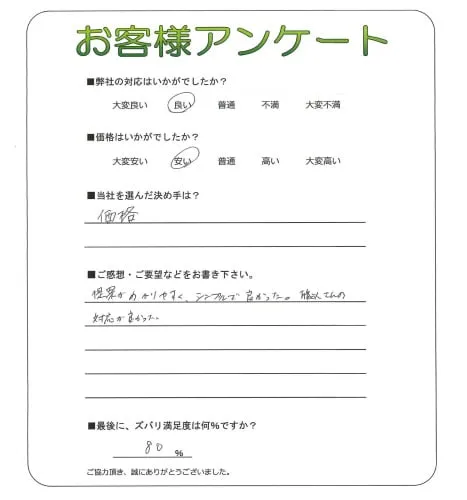 お客様アンケート
■弊社の対応はいかがでしたか？
大変良い 良い 普通 不満 大変不満
■価格はいかがでしたか？
大変安い 安い 普通 高い 大変高い
■当社を選んだ決め手は？
価格
■ご感想・ご要望などをお書き下さい。
がわかりやすく、シンプルで良かった。
対応が良かった。
■最後に、ズバリ満足度は何％ですか？
80 %
ご協力頂き、誠にありがとうございました。